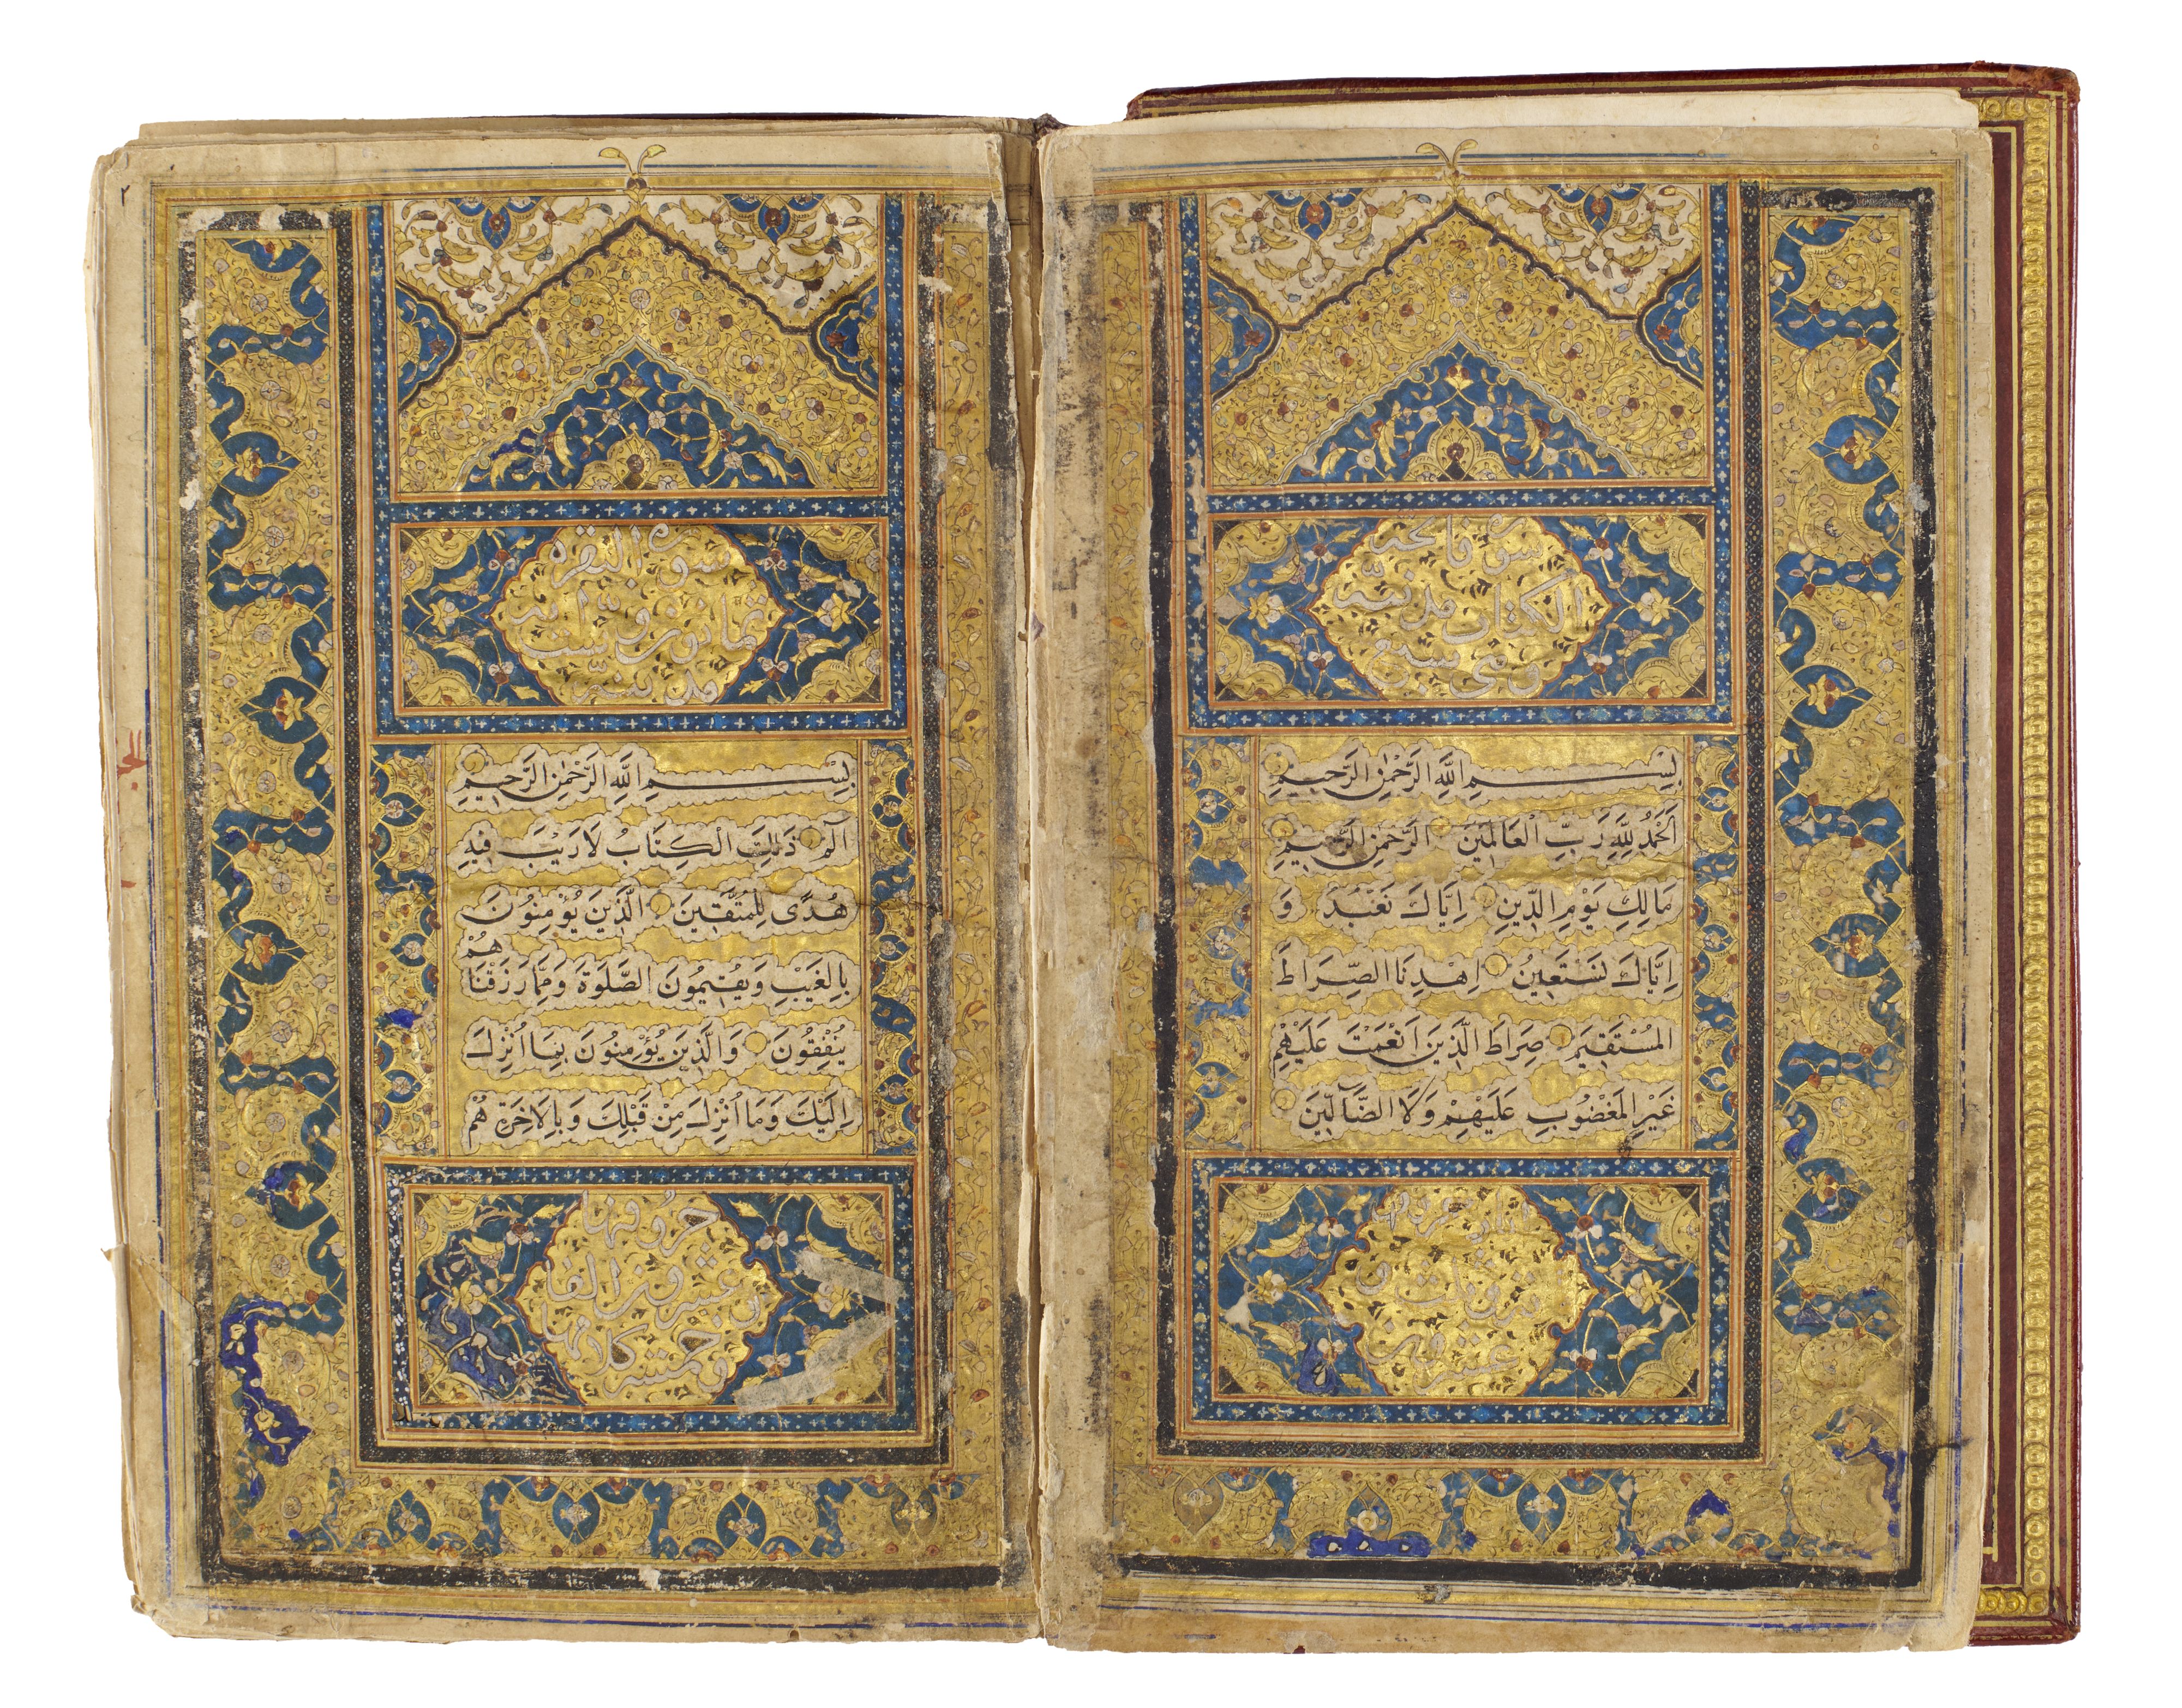 سورة فاتحة
الكتاب مدنية
وهي سبع
بِسْمِ اللَّهِ الرَّحْمٰنِ الرَّحِيمِ
اَلْحَمْدُ لِلَّهِ رَبِّ الْعَالَمِينَ الرَّحْمٰنِ الرَّحِيمِ
مَالِكِ يَوْمِ الدِّينِ اِيَّاكَ نَعْبُدُ وَ
اِيَّاكَ نَسْتَعِينُ اِهْدِنَا الصِّرَاطَ
الْمُسْتَقِيمَ صِرَاطَ الَّذِينَ اَنْعَمْتَ عَلَيْهِمْ
غَيْرِ الْمَغْضُوبِ عَلَيْهِمْ وَلَا الضَّآلِّينَ
سورة البقرة
مدنية
بِسْمِ اللَّهِ الرَّحْمٰنِ الرَّحِيمِ
الٓمٓ ذٰلِكَ الْكِتَابُ لَا رَيْبَ فِيهِ
هُدًى لِلْمُتَّقِينَ الَّذِينَ يُؤْمِنُونَ
بِالْغَيْبِ وَيُقِيمُونَ الصَّلٰوةَ وَمِمَّا رَزَقْنَا هُمْ
يُنْفِقُونَ وَالَّذِينَ يُؤْمِنُونَ بِمَا اُنْزِلَ
اِلَيْكَ وَمَا اُنْزِلَ مِنْ قَبْلِكَ وَبِالْاٰخِرَةِ هُمْ
حروفها
٢